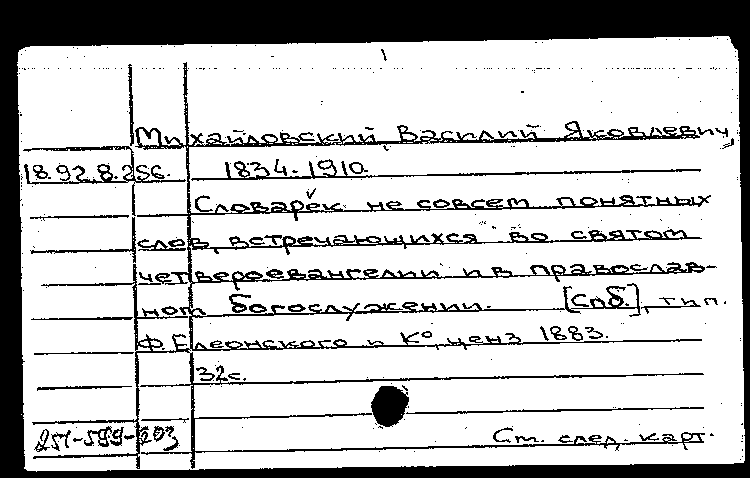 Михайловский, Василий Яковлевич,
18.92.8.256. 1834-1910.
Словарек не совсем понятных
слов, встречающихся во святом
четвероевангелии и в православ-
ном богослужении. [Спб.], тип.
Ф. Елеонского и К°, ценз 1883.
32с.
251-599-203
См. след. карт.